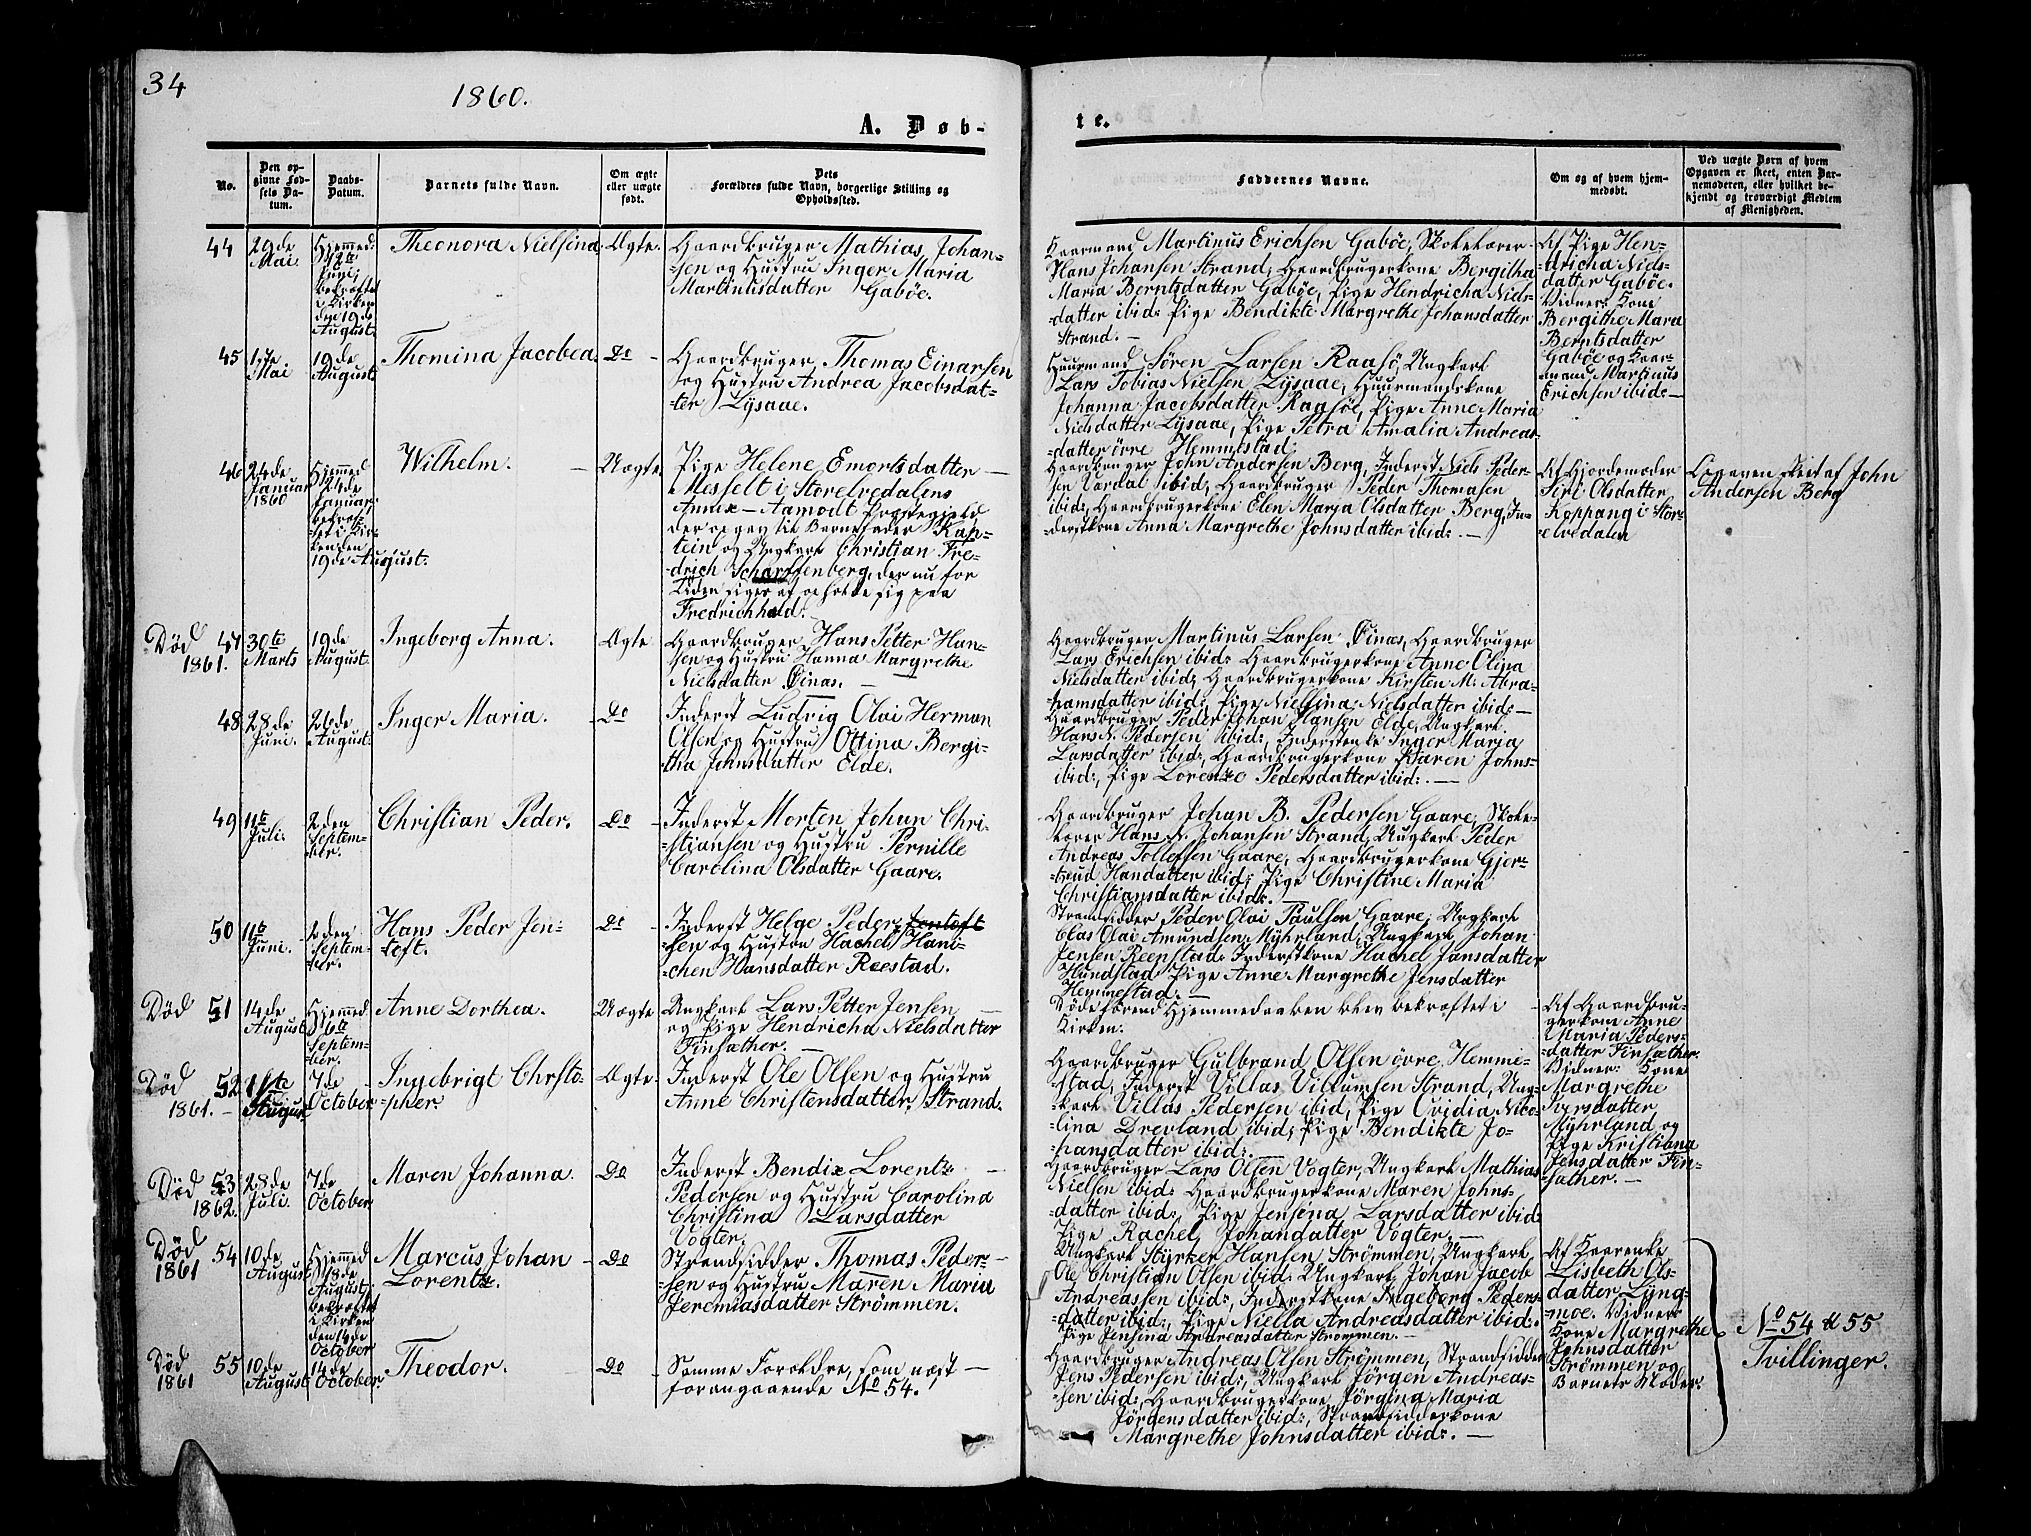 34
1860.
A. Døb-
te.
No.
Den op-
givne Fød-
sels Da-
tum.
Daabs-
Datum.
Barnets fulde Navn.
Om ægte
eller uægte
født.
Dets
Forældres fulde Navn, borgerlige Stilling og
Opholdssted.
Faddernes Navne.
Om og af hvem hjem-
medøbt.
Ved uægte Børn af hvem
Opgaven er skeet, enten Bar-
nemoderen, eller hvilket be-
kjendt og troværdigt Medlem
af Menigheden.
44
29de
Mai.
Hjemmed:
12te
Juni,
bekræftet
i Kirken
den 19de
August.
Theonora Nielsina
Ægte.
Gaardbruger Mathias Johan-
=sen og Hustru Inger Maria
Martinusdatter Gabøe.
Gaarmand Martinus Erichsen Gabøe, Skolelærer
Hans Johansen Strand, Gaardbrugerkone Bergitha
Maria Berntsdatter Gabøe, Pige Hendricha Niels-
=datter ibid: Pige Bendikte Margrethe Johansdatter
Strand. —
Af Pige Hen-
=dricha Niels-
datter Gabøe.
Vidner: Kone
Bergithe Maria
Berntsdatter
Gabøe og Gaar-
mand Martinus
Erichsen ibid: —
45
17de
Mai
19de
August
Thomina Jacobea.
Do —
Gaardbruger Thomas Einarsen
og Hustru Andrea Jacobsdat-
=ter Lysaae.
Huurmand Sören Larsen Raasö, Ungkarl
Lars Tobias Nielsen Lysaae, Huurmandskone
Johanna Jacobsdatter Raasøe, Pige Anne Maria
Nielsdatter Lysaae, Pige Petra Amalia Andreas-
=datter övre Hemmestad.
46
24de
Januar
1860
Hjemmed
24de
Januar,
bekræf-
tet i Kir-
ken den
19de August.
Wilhelm. —
Uægte
Pige Helene Emortsdatter —
Messelt i Storelvedalens
Annex – Aamodt Præstegield
der opgav til Barnefader Kap-
tein og Ungkarl Christian Fre-
drich Scharffenberg, der nu for
Tiden siges at opholde sig paa
Fredrichhald.
Gaardbruger John Andersen Berg, Inderst Niels Peder-
sen Vardal ibid, Gaardbruger Peder Thomasen
ibid: Gaardbrugerkone Elen Marja Olsdatter Berg, In-
derstkone Anna Margrethe Johnsdatter ibid: —
Af Gjordemoder
Siri Olsdatter
Koppang i Stor-
elvedalen
Opgaven skeet af John
Andersen Berg
Død
1861.
47
30te
Marts
19de
August.
Ingeborg Anna.
Ægte
Gaardbruger Hans Petter Han-
sen og Hustru Hanna Margrethe
Nielsdatter Finæs. —
Gaardbruger Martinus Larsen Finæs, Gaardbruger
Lars Erichsen ibid: Gaardbrugerkone Anne Olina
Nielsdatter ibid: Gaardbrugerkone Kirsten M: Abra-
hamsdatter ibid: Pige Nielsina Nielsdatter ibid: —
48
28de
Juni.
26de
August.
Inger Maria.
Do
Inderst Ludvig Olai Herman
Olsen og Hustru Ottina Bergi-
tha Johnsdatter Elde.
Gaardbruger Peder Johan Hansen Elde, Ungkarl
Hans N. Pedersen ibid:, Inderstenke Inger Maria
Larsdatter ibid:, Gaardbrugerkone Karen Johns-
ibid:, Pige Lorentze Pedersdatter ibid: —
49
11te
Juli.
2den
Septem-
ber.
Christian Peder.
Do
Inderst Morten Johan Chri-
=stiansen og Hustru Pernille
Carolina Olsdatter Gaare.
Gaardbruger Johan B. Pedersen Gaare, Skole-
lærer Hans N. Johansen Strand, Ungkarl Peder
Andreas Tollefsen Gaare, Gaardbrugerkone Gjer-
trud Hansdatter ibid: Pige Christine Maria
Christiansdatter ibid: —
50
11te
Juni.
2den
Septem-
ber.
Hans Peder Jen-
=toft.
Do
Inderst Helge Peder Jentoft
sen og Hustru Rachel Hani-
=chen Hansdatter Reestad.
Strandsidder Peder Olai Paulsen Gaare, Ungkarl
Clas Olai Amundsen Myhrland, Ungkarl Johan
Jensen Reenstad, Inderstkone Rachel Jansdatter
Hundstad Pige Anne Margrethe Jensdatter
Hemmestad: —
Død
51
14de
August
Hjemmed
6te
Septem-
ber.
Anne Dorthea.
Uægte
Ungkarl Lars Petter Jensen —
og Pige Hendricha Nielsdatter
Finsæther. —
Døde førend Hjemmedaaben blev bekræftet i
Kirken.
Af Gaardbru-
gerkone Anne
Maria Peders-
datter Finsæther.
Vidner: Kone
Margrethe
Iversdatter
Myhrland og
Pige Kristiana
Jensdatter Fin-
sæther. —
Død
1861. —
52
1ste
August
7de
October
Ingebrigt Chrsto-
=pher.
Ægte
Inderst Ole Olsen og Hustru
Anne Christensdatter, Strand.
Gaardbruger Gulbrand Olsen övre Hemme-
=stad, Inderst Villas Villumsen Strand, Ung-
karl Villas Pedersen ibid, Pige Ovidia Nico-
=lina Drevland ibid; Pige Bendikte Jo-
=hansdatter ibid: —
Død
1862.
53
28de
Juli.
7de
October
Maren Johanna.
Do
Inderst Bendix Lorentz —
Pedersen og Hustru Carolina
Christina Larsdatter
Vogter.
Gaardbruger Lars Olsen Vogter, Ungkarl Mathias
Nielsen ibid: Gaardbrugerkone Maren Johns-
=datter ibid:, Pige Jensina Larsdatter ibid:
Pige Rachel Johandatter Vogter. —
Død
1861
54
10de
August
Hjemmed
18de
August,
bekræftet
i Kirken
den 14de
October
Marcus Johan
Lorentz.
Do
Strandsidder Thomas Peder- —
=sen og Hustru Maren Maria
Jeremiasdatter Strømmen.
Ungkarl Styrker Hansen Strømmen, Ungkarl
Ole Christian Olsen ibid: Ungkarl Johan Jacob
Andreassen ibid:, Inderstkone Ingeborg Peders-
=datter ibid:, Pige Niella Andreasdatter ibid:
Pige Jensina Andreasdatter Strømmen. —
Af Kaarenke
Lisbeth Ols-
datter Lyng-
moe. Vidner
Kone Margrethe
Johnsdatter
Strømmen og
Barnets Moder.
No 54 & 55
Tvillinger.
Død
1861
55
10de
August
14de
October.
Theodor.
Do
Samme Forældre, som næst —
foregaaende No 54.
Gaardbruger Andreas Olsen Strømmen, Strandsidder
Jens Pedersen ibid:, Ungkarl Jørgen Andreas-
=sen ibid:, Gaardbrugerkone Jørgina Maria
Jörgensdatter ibid:, Strandsidderkone
Margrethe Johnsdatter ibid:. —